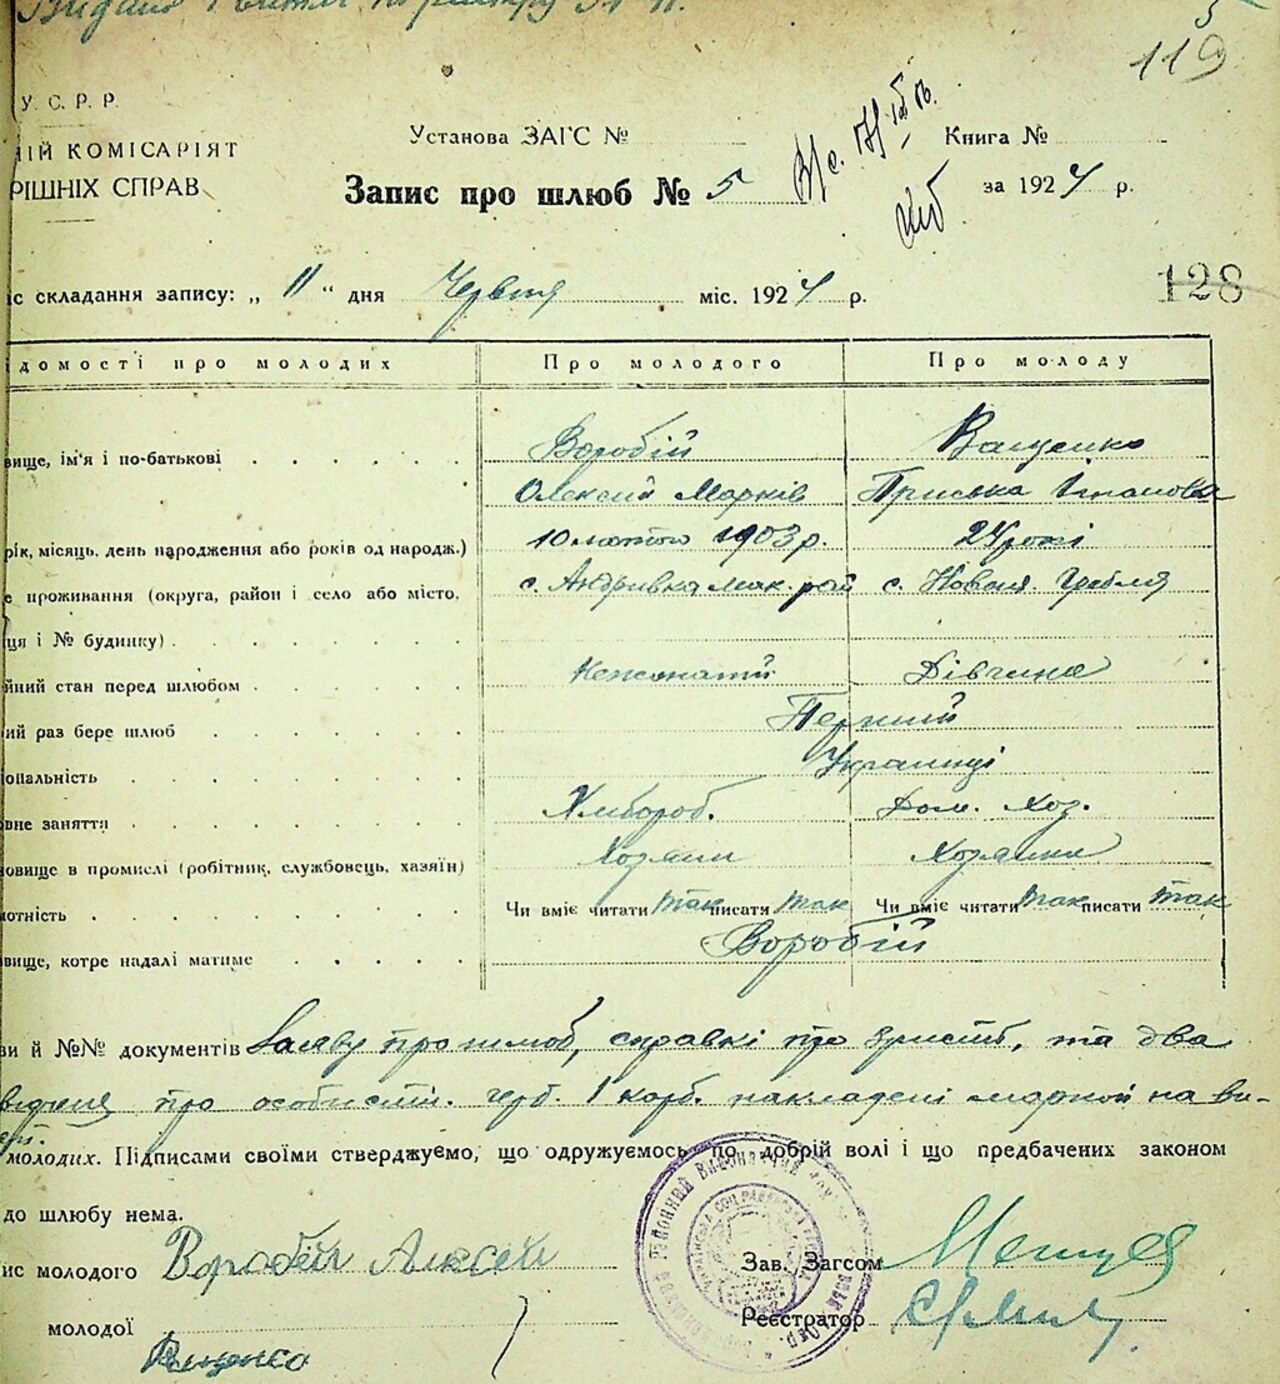 Видано
119
У. С. Р. Р.
НІЙ КОМІСАРІЯТ
РІШНІХ СПРАВ
Установа ЗАГС №
Книга №
Запис про шлюб № 5
за 1924 р.
с складання запису: „ 11 “ дня Червня міс. 1924 р.
128
ідомості про молодих
Про молодого
Про молоду
вище, ім'я і по-батькові
Воробій
Ващенко
Олексій Марків
Приська Іпанова
рік, місяць, день народження або років од народж.)
10 лютого 1903 р.
24 роки
е проживання (округа, район і село або місто,
с. Андріївка мак. рай
с. Новая Гребля
ця і № будинку)
йний стан перед шлюбом
Нежонатий
Дівчина
ий раз бере шлюб
Перший
іональність
Українці
вне заняття
Хлібороб.
Дом. хоз.
новище в промислі (робітник, службовець, хазяїн)
Хозяин
Хозяйка
отність
Чи вміє читати так писати так
Чи вміє читати так писати так
вище, котре надалі матиме
Воробій
ви й №№ документів Заяву про шлюб, справкі про зрист, та два
про особисті. герб. 1 карб. накладені маркой на ви-
молодих. Підписами своїми стверджуємо, що одружуємось по добрій волі і що предбачених законом
до шлюбу нема.
ис молодого Воробей Алксей
Зав. Загсом
молодої
Реєстратор
Ващенко